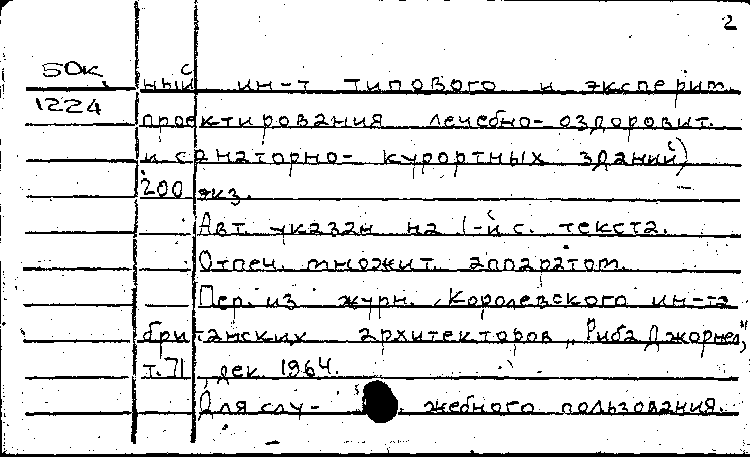 2
50к
ный ин-т типового и эксперим.
1224
проектирования лечебно-оздоровит.
и санаторно-курортных зданий)
200 экз.
Авт. указан на 1-й с. текста.
Отпеч. множит. аппаратом.
Пер. из журн. Королевского ин-та
британских архитекторов „Риба Джорнел",
т. 71, дек. 1964.
Для слу- жебного пользования.